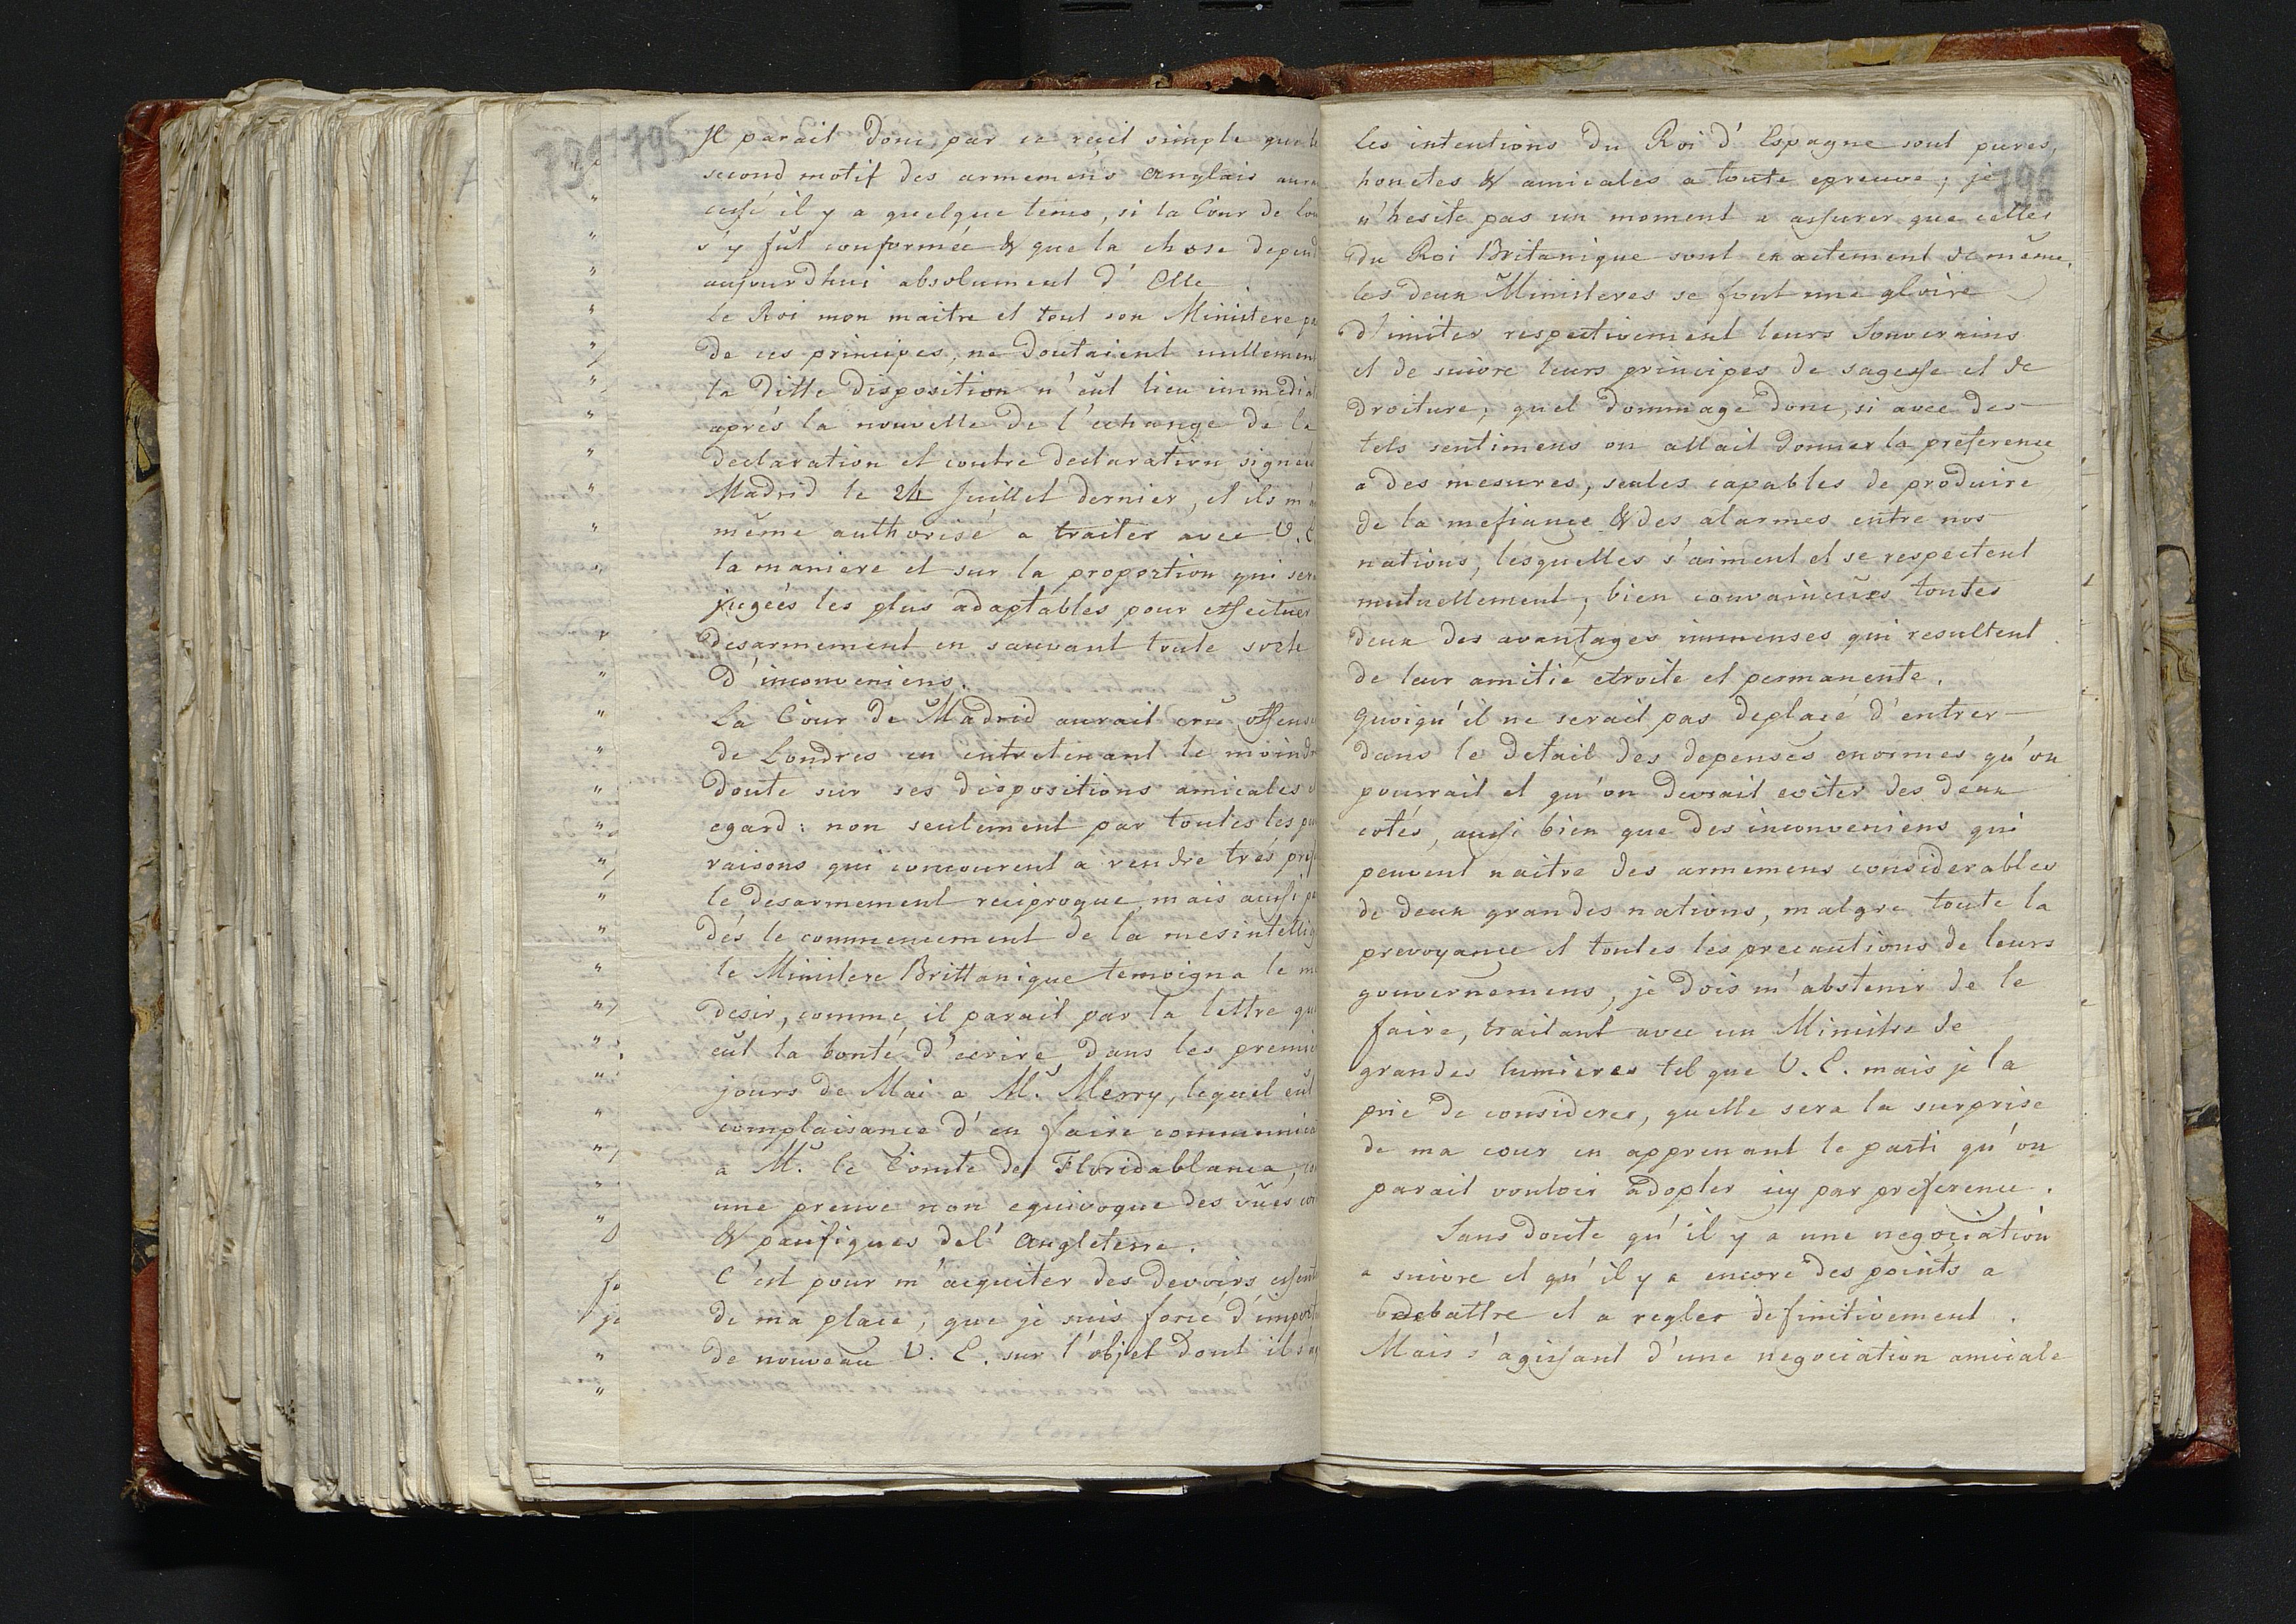 795
Il parait donc, par ce recit simple que le
second motif des armemens Anglais aura
cessé il y a quelque tems, si la Cour de Lon
s'y fut conformée & que la chose depend
aujourdhui absolument d'Elle.
Le Roi mon maitre et tout son Ministere
de ces principes, ne doutaient nullement
la ditte disposition n'eut lieu immediat
aprés la nouvelle de l'echange de la
declaration et contre declaration signée
Madrid le 24 Juillet dernier, et ils m'
même authorisé a traiter avec V. E.
la maniere et sur la proportion qui ser
jugeés les plus adaptables pour effectuer
desarmement en sauvant toute sorte
d'inconveniens.
La Cour de Madrid aurait cru offens
de Londres en entretenant le moindr
doute sur ses dispositions amicales
egard: non seulement par toutes les
raisons qui concourent a rendre trés
le desarmement reciproque, mais aussi
dés le commencement de la mesintellig
le Ministere Brittanique temoigna le m
desir, comme il parait par la lettre qu
eût la bonté d'ecrire dans les premie
jours de Mai a Mr. Merry, lequel eut
complaisance d'en faire communica
a Mr. le Comte de Floridablanca,
une preuve non equivoque des vües
& pacifiques de l'Angleterre.
C'est pour m'acquiter des devoirs essent
de ma place, que je suis forcé d'import
de nouveau V. E. sur l'objet dont il s'a
796
Les intentions du Roi d'Espagne sont pures,
honetes & amicales a toute epreuve; je
n'hesite pas un moment a assurer que celles
du Roi Britanique sont exactement de même.
les deux Ministeres se font une gloire
d'imiter respectivement leurs Souverains
et de suivre leurs principes de sagesse et de
droiture; quel dommage donc, si avec des
tels sentimens on allait donner la preference
a des mesures, seules capables de produire
de la mefiance & des alarmes entre nos
nations, lesquelles s'aiment et se respectent
mutuellement, bien convaincües toutes
deux des avantages immenses qui resultent
de leur amitié etroite et permanente.
Quoiqu'il ne serait pas deplacé d'entrer
dans le detail des depenses enormes qu'on
pourrait et qu'on devrait eviter des deux
cotés, aussi bien que des inconveniens qui
peuvent naitre des armemens considerables
de deux grandes nations, malgre toute la
prevoyance et toutes les precautions de leurs
gouvernemens, je dois m'abstenir de le
faire, traitant avec un Ministre de
grandes lumieres tel que V. E. mais je la
prie de considerer, quelle sera la surprise
de ma cour en apprenant le parti qu'on
parait vouloir adopter icy par preference.
Sans doute qu'il y a une negociation
a suivre et qu'il y a encore des points a
debattre et a regler definitivement.
Mais s'agissant d'une negociation amicale